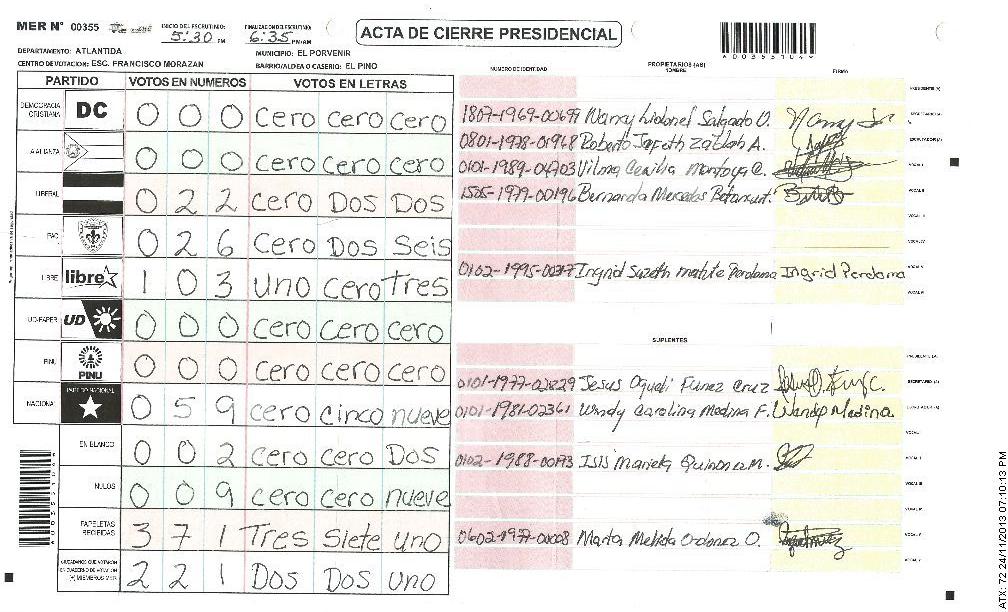 MER N° 00355
INICIO DEL ESCRUTINIO: 5:30 PM
FINALIZACION DEL ESCRUTINIO: 6:35 PM/AM
ACTA DE CIERRE PRESIDENCIAL
DEPARTAMENTO: ATLANTIDA
MUNICIPIO: EL PORVENIR
CENTRO DE VOTACION: ESC. FRANCISCO MORAZAN
BARRIO/ALDEA O CASERIO: EL PINO
PARTIDO VOTOS EN NUMEROS VOTOS EN LETRAS
NUMERO DE IDENTIDAD PROPIETARIOS (AS) NOMBRE FIRMA
DEMOCRACIA CRISTIANA DC 0 0 0 cero cero cero
LA ALIANZA 0 0 0 cero cero cero
LIBERAL 0 2 2 cero Dos Dos
PAC 0 2 6 cero Dos Seis
LIBRE libre 1 0 3 uno cero Tres
UD-FAPER UD 0 0 0 cero cero cero
PINU PINU 0 0 0 cero cero cero
NACIONAL PARTIDO NACIONAL 0 5 9 cero cinco nueve
EN BLANCO 0 0 2 cero cero Dos
NULOS 0 0 9 cero cero nueve
PAPELETAS RECIBIDAS 3 7 1 Tres Siete uno
CIUDADANOS QUE VOTARON EN CUADERNO DE VOTACION (+) MIEMBROS MER 2 2 1 Dos Dos uno
Salgado O.
0801-1978-01968 Roberto
Vilma Cecilia Montoya C.
1505-1979-00196 Bernarda Mercedes
0102-1995- Ingrid matute Perdomo Ingrid Perdomo
SUPLENTES
Jesus Funez Cruz
0101-1981-02361 Windy Carolina Medina F. Medina
Isis Quinonez M.
0602-1977-00008 Marta Ordonez O.
ATX: 72 24/11/2013 07:10:13 PM